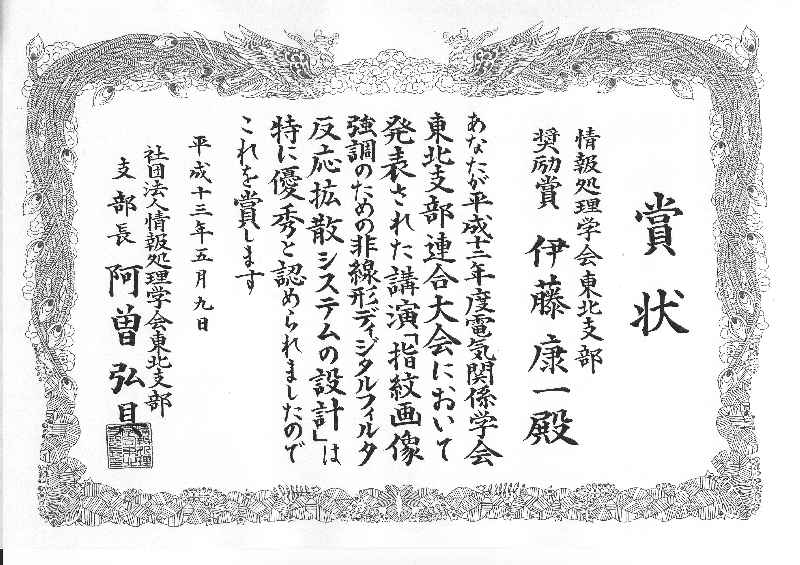 賞状
情報処理学会東北支部
奨励賞 伊藤 康一殿
あなたが平成十二年度電気関係学会
東北支部連合大会において
発表された講演「指紋画像
強調のための非線形ディジタルフィルタ
反応拡散システムの設計」は
特に優秀と認められましたので
これを賞します
平成十三年五月九日
社団法人情報処理学会東北支部
支部長 阿曽弘具